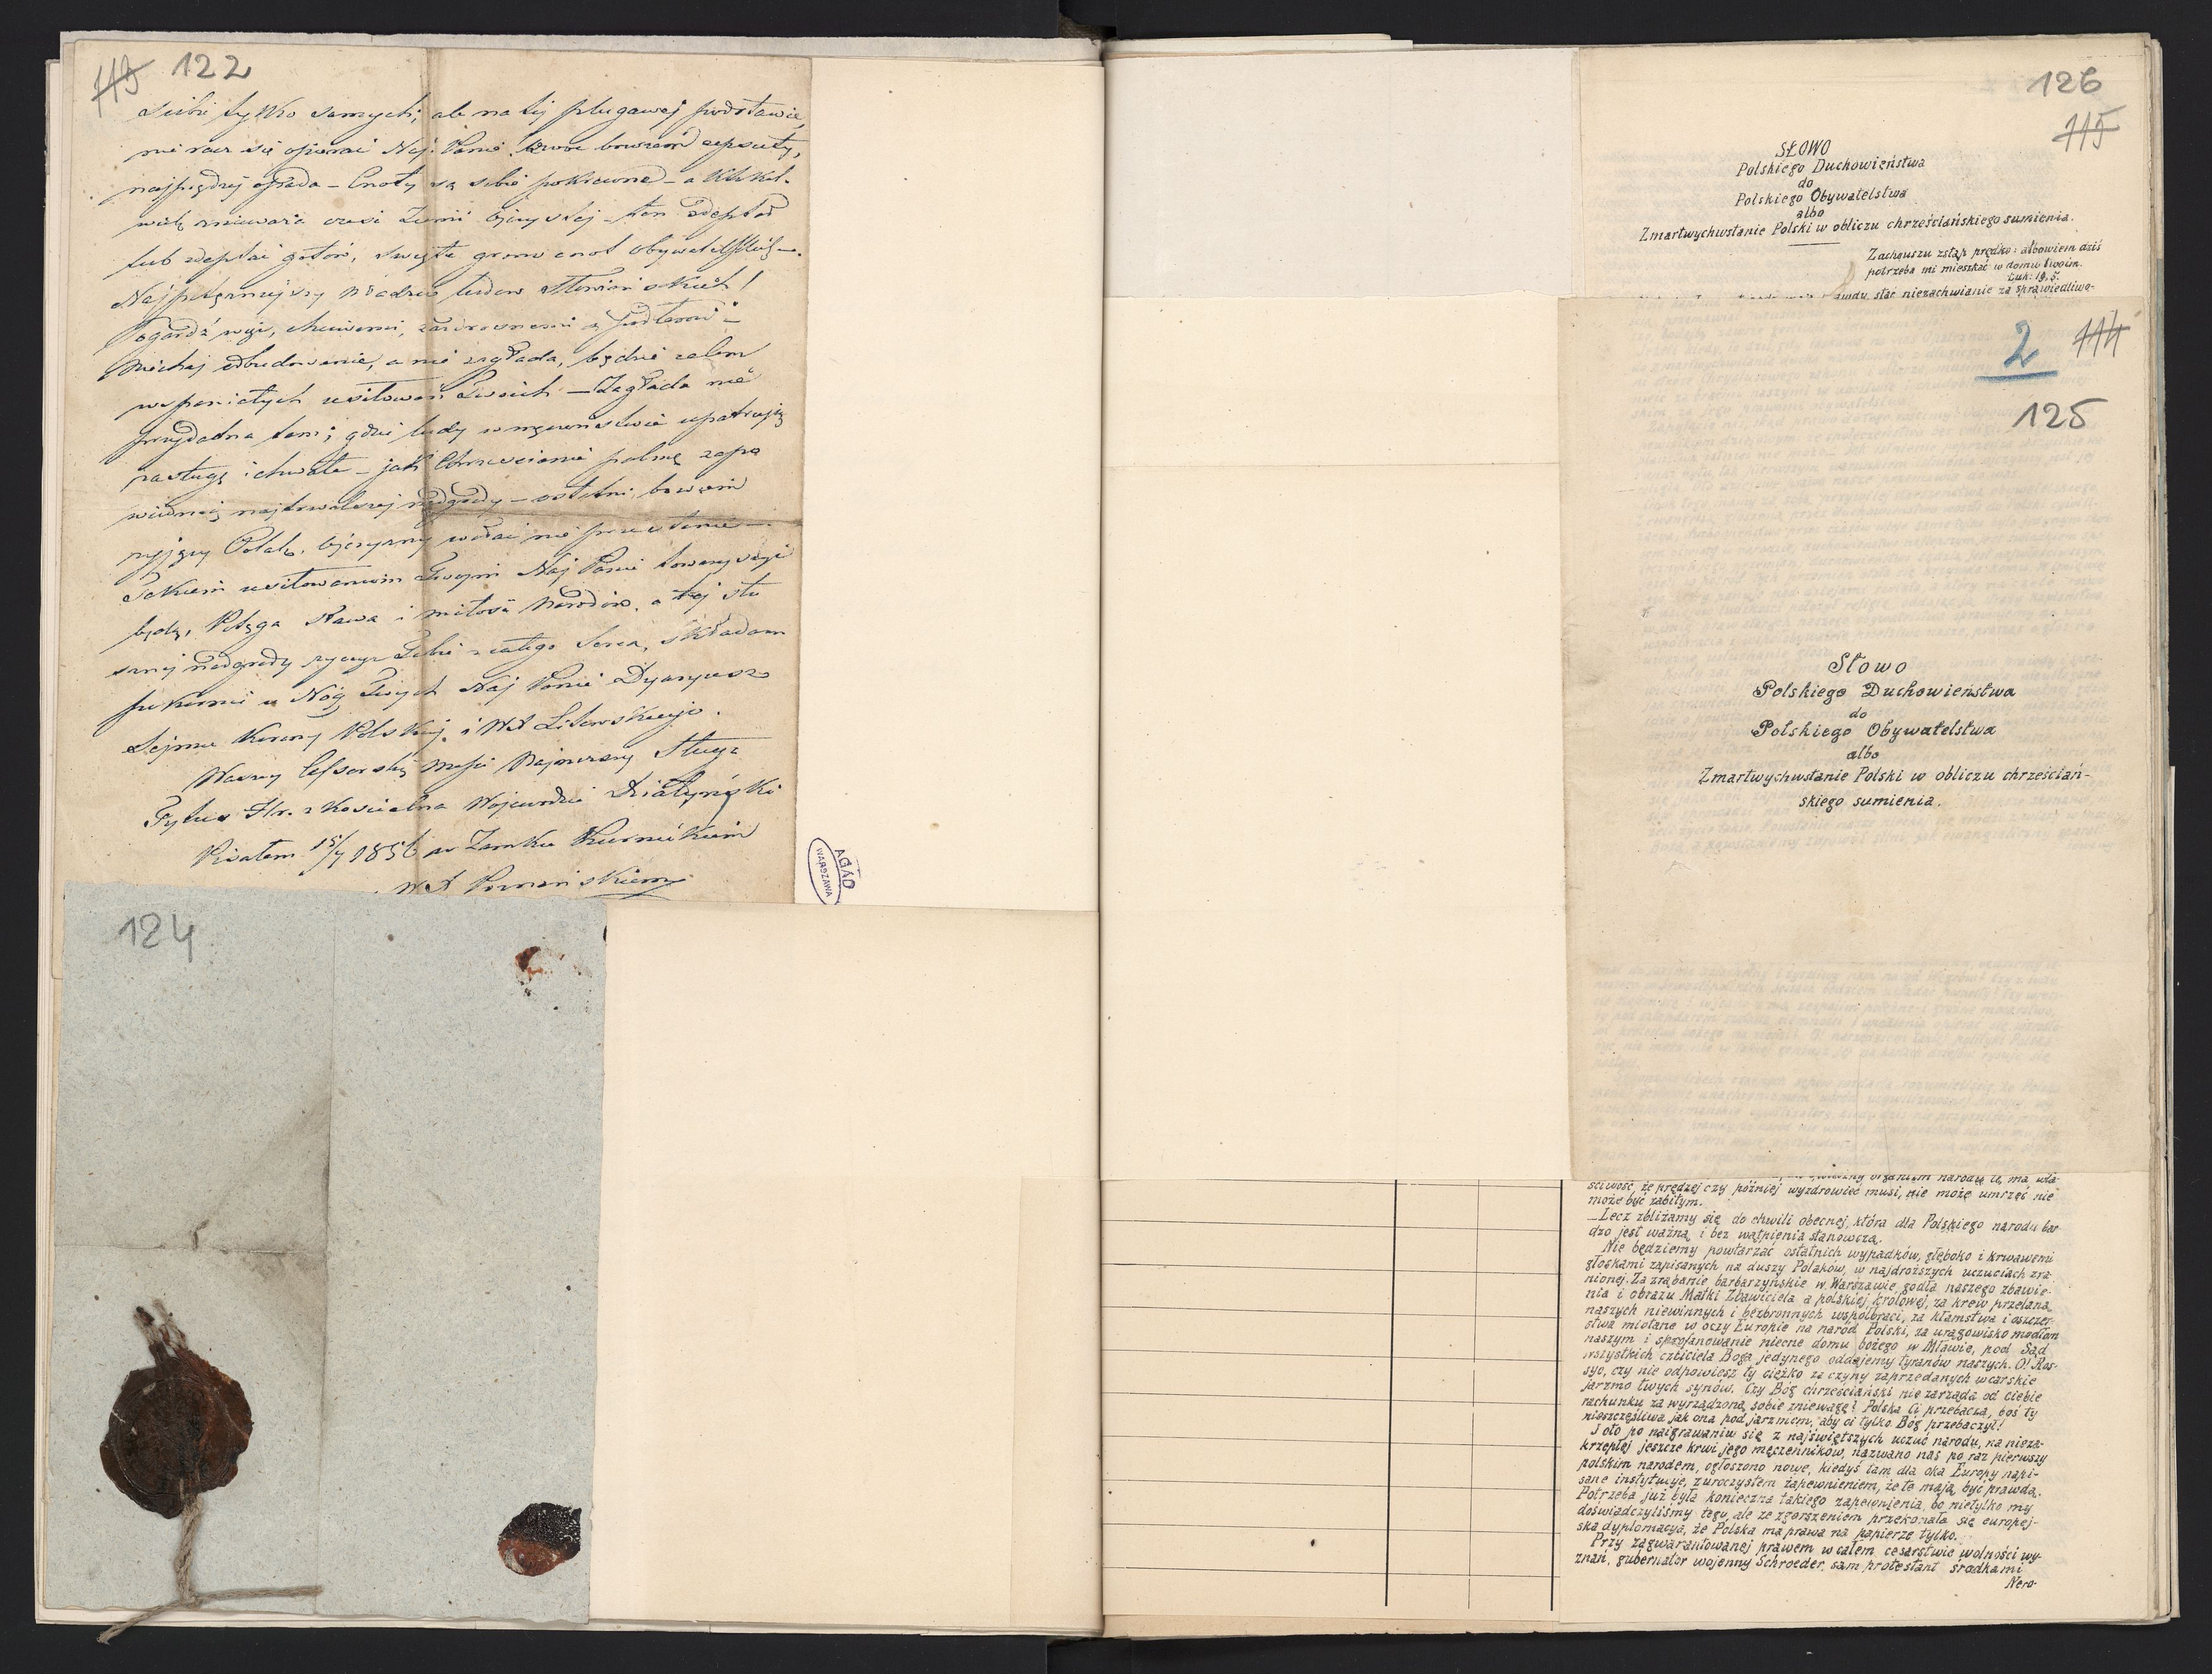 119 122
siebie tylko samych; ale na tej plugawej podstawie,
nie racz się opierać Naj. Panie! owoc bowiem zepsuty,
najprędzej opada – Cnoty są sobie pokrewne – a ktokol-
wiek znieważa cześć Ziemi ojczystej – ten zdeptał
lub zdeptać gotów, święte grono cnot obywatelskich –
Najpotężniejszy władzco ludów Słowiańskich!
Pogardź więc, chciwemi, zazdrosnemi i podłemi –
Niechaj odbudowanie, a nie zagłada, będzie celem
wspaniałych usiłowań Twoich – Zagłada nie
przydatna tam; gdzie ludy w męczeństwie upatrują
zasługę i chwałę – jak Chrześcianie palmę zapo
wiednią najtrwalszej nadgrody – ostatni bowiem
żyjący Polak, ojczyzny wołać nie przestanie –
Takiem usiłowaniom Twojm Naj Panie towarzyszyć
będą, Potęga Sława i miłość Narodów, a tej słu
sznej nadgrody życząc Tobie z całego Serca, składam
pokornie u Nóg Twych Naj Panie Dyaryusz
Sejmu Korony Polskiej i WX Litewskiego.
Waszej Cesarskiej Mości Najniższy Sługa
Tytus Hr. z Kościelca Wojewodzic Działyński
Pisałem 15/7 1856 w Zamku Kurnickim
WX Poznańskiem
AGAD
WARSZAWA
124
126
115
SŁOWO
Polskiego Duchowieństwa
do
Polskiego Obywatelstwa
albo
Zmartwychwstanie Polski w obliczu chrześciańskiego sumienia.
Zacheuszu zstąp prędko: albowiem dziś
potrzeba mi mieszkać w domu twoim.
Łuk: 19, 5.
stać niezachwianie za sprawiedliwo-
2 114
125
Słowo
Polskiego Duchowieństwa
do
Polskiego Obywatelstwa
albo
Zmartwychwstanie Polski w obliczu chrześciań-
skiego sumienia.
organizm narodu te, ma wła-
sciwość, że prędzej czy później wyzdrowieć musi, nie może umrzeć nie
może być zabitym.
Lecz zbliżamy się do chwili obecnej, która dla Polskiego narodu bar
dzo jest ważną i bez wątpienia stanowczą.
Nie będziemy powtarzać ostatnich wypadków, głęboko i krwawemi
głoskami zapisanych na duszy Polaków, w najdroższych uczuciach zra-
nionej. Za zrąbanie barbarzyńskie w Warszawie godła naszego zbawie-
nia i obrazu Matki Zbawiciela a polskiej królowej, za krew przelaną
naszych niewinnych i bezbronnych współbraci, za kłamstwa i oszczer-
stwa miotane w oczy Europie na naród Polski, za urągowisko modłom
naszym i sprofanowanie niecne domu bożego w Mławie, pod Sąd
wszystkich czciciela Boga jedynego oddajemy tyranów naszych. O! Ros-
syo, czy nie odpowiesz ty ciężko za czyny zaprzedanych w carskie
jarzmo twych synów. Czy Bóg chrześciański nie zarząda od ciebie
rachunku za wyrządzoną sobie zniewagę? Polska Ci przebacza, boś ty
nieszczęśliwa jak ona pod jarzmem, aby ci tylko Bóg przebaczył!
I oto po naigrawaniu się z najświętszych uczuć narodu, na nieza-
krzepłej jeszcze krwi jego męczenników, nazwano nas po raz pierwszy
polskim narodem, ogłoszono nowe, kiedyś tam dla oka Europy napi-
sane instytucye, z uroczystem zapewnieniem, że te mają być prawdą.
Potrzeba już była konieczna takiego zapewnienia, bo nietylko my
doświadczyliśmy tego, ale ze zgorszeniem przekonała się europej-
ska dyplomacya, że Polska ma prawa na papierze tylko.
Przy zagwarantowanej prawem w całem cesarstwie wolności wy-
znań, gubernator wojenny Schroeder, sam protestant środkami
Nero-